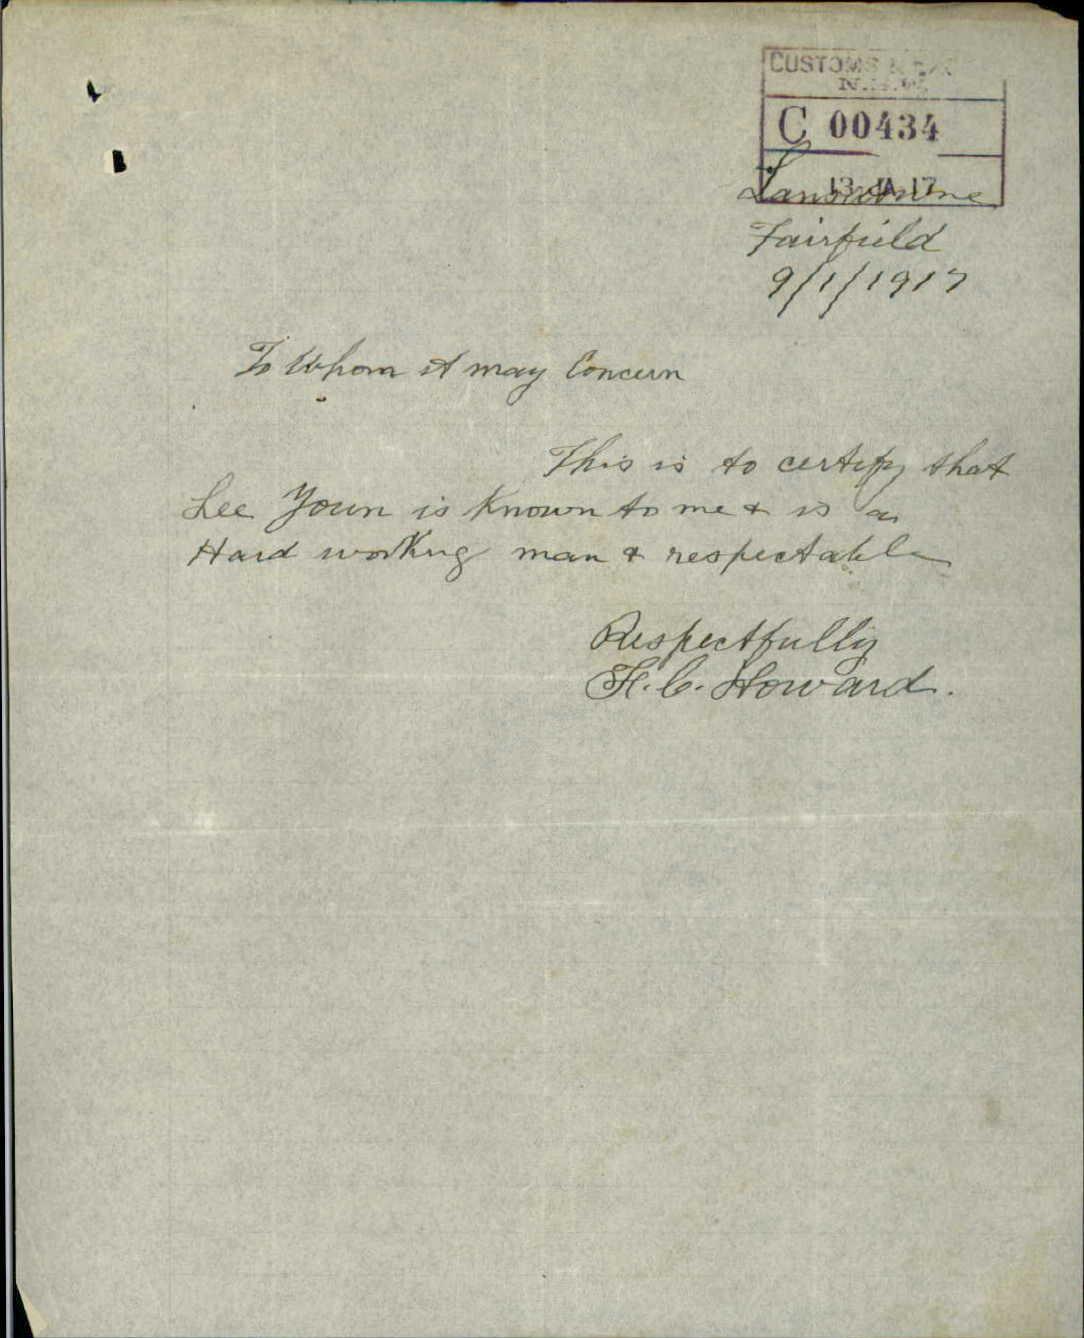 CUSTOMS &
N.S.W.
C 00434
13 JA 17
Lansdowne
Fairfield
9/1/1917
To Whom it may Concern
This is to certify that
Lee Youn is Known to me & is a
Hard working man & respectable
Respectfully
H. C. Howard.